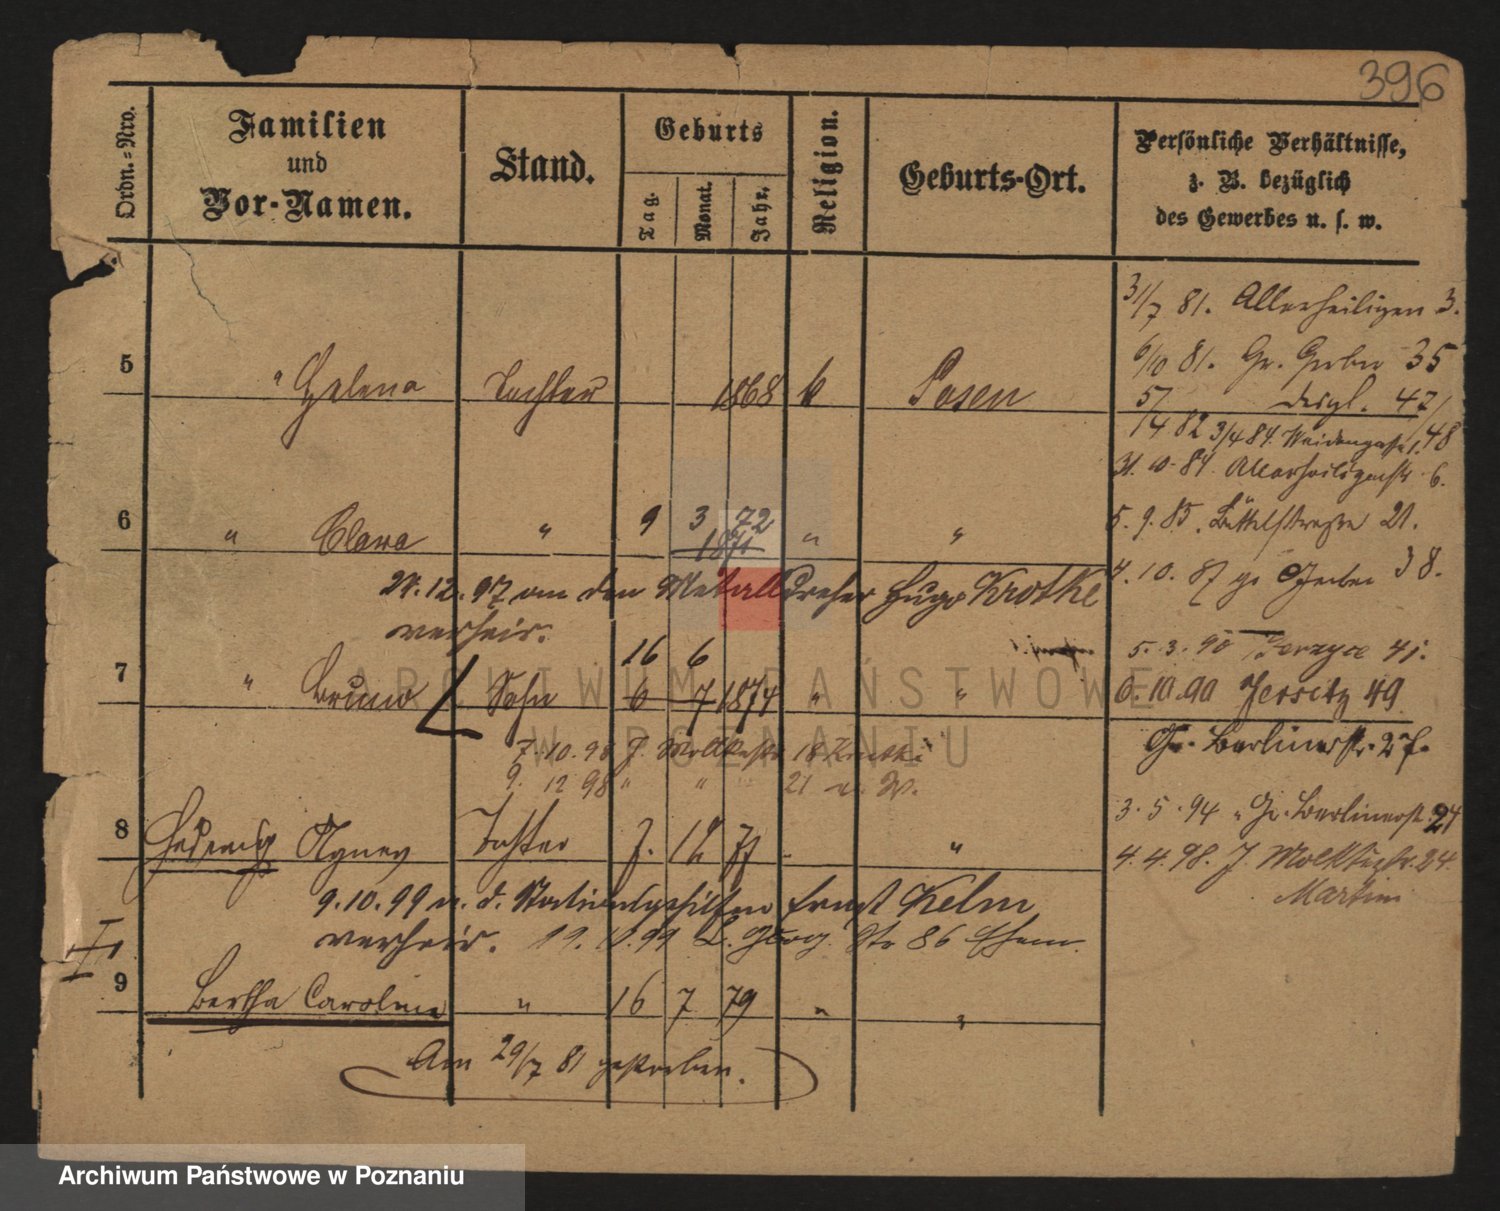 396
Ordn.=Nro.
Familien
und
Vor-Namen.
Stand.
Geburts
Tag.
Monat.
Jahr.
Religion.
Geburts-Ort.
Persönliche Verhältnisse,
z. B. bezüglich
des Gewerbes u. s. w.
5 " Helena Tochter 1868 k Posen
6 " Clara " 9 3 72 " "
1871
21.12.97 an den Metalldreher Hugo Krotke
verheir.
16 6
7 " Bruno Sohn 6 7 1874 " "
7.10.98 J. Moltkestr 18
9. 12 98 " " 21 u. W.
8 Hedwig Agnes Tochter 7. 12 77 "
9.10.99 a. d. Stationsgehilfen Ernst Kelm
verheir. 19. 10. 99 Str 86 Ehem.
I
9 Bertha Caroline " 16 7 79 " "
Am 29/7 81 gestorben.
31/7 81. Allerheiligen 3.
6/10 81. Gr. Gerber 35
5/4 82 desgl. 47/48
3/4 84. Weidengasse 1.
31. 10. 84. Allerheiligenstr 6.
5. 9. 85. Büttelstrasse 21.
4. 10. 87 gr Gerber 38.
5. 3. 90 Jerzyce 41.
6. 10. 90 Jersitz 49
Gr. Berlinerstr. 27.
3. 5. 94 " Gr. Berlinerstr. 24
4. 4. 98. J. Moltkestr. 24.
Martin
ARCHIWUM PAŃSTWOWE
W POZNANIU
Archiwum Państwowe w Poznaniu